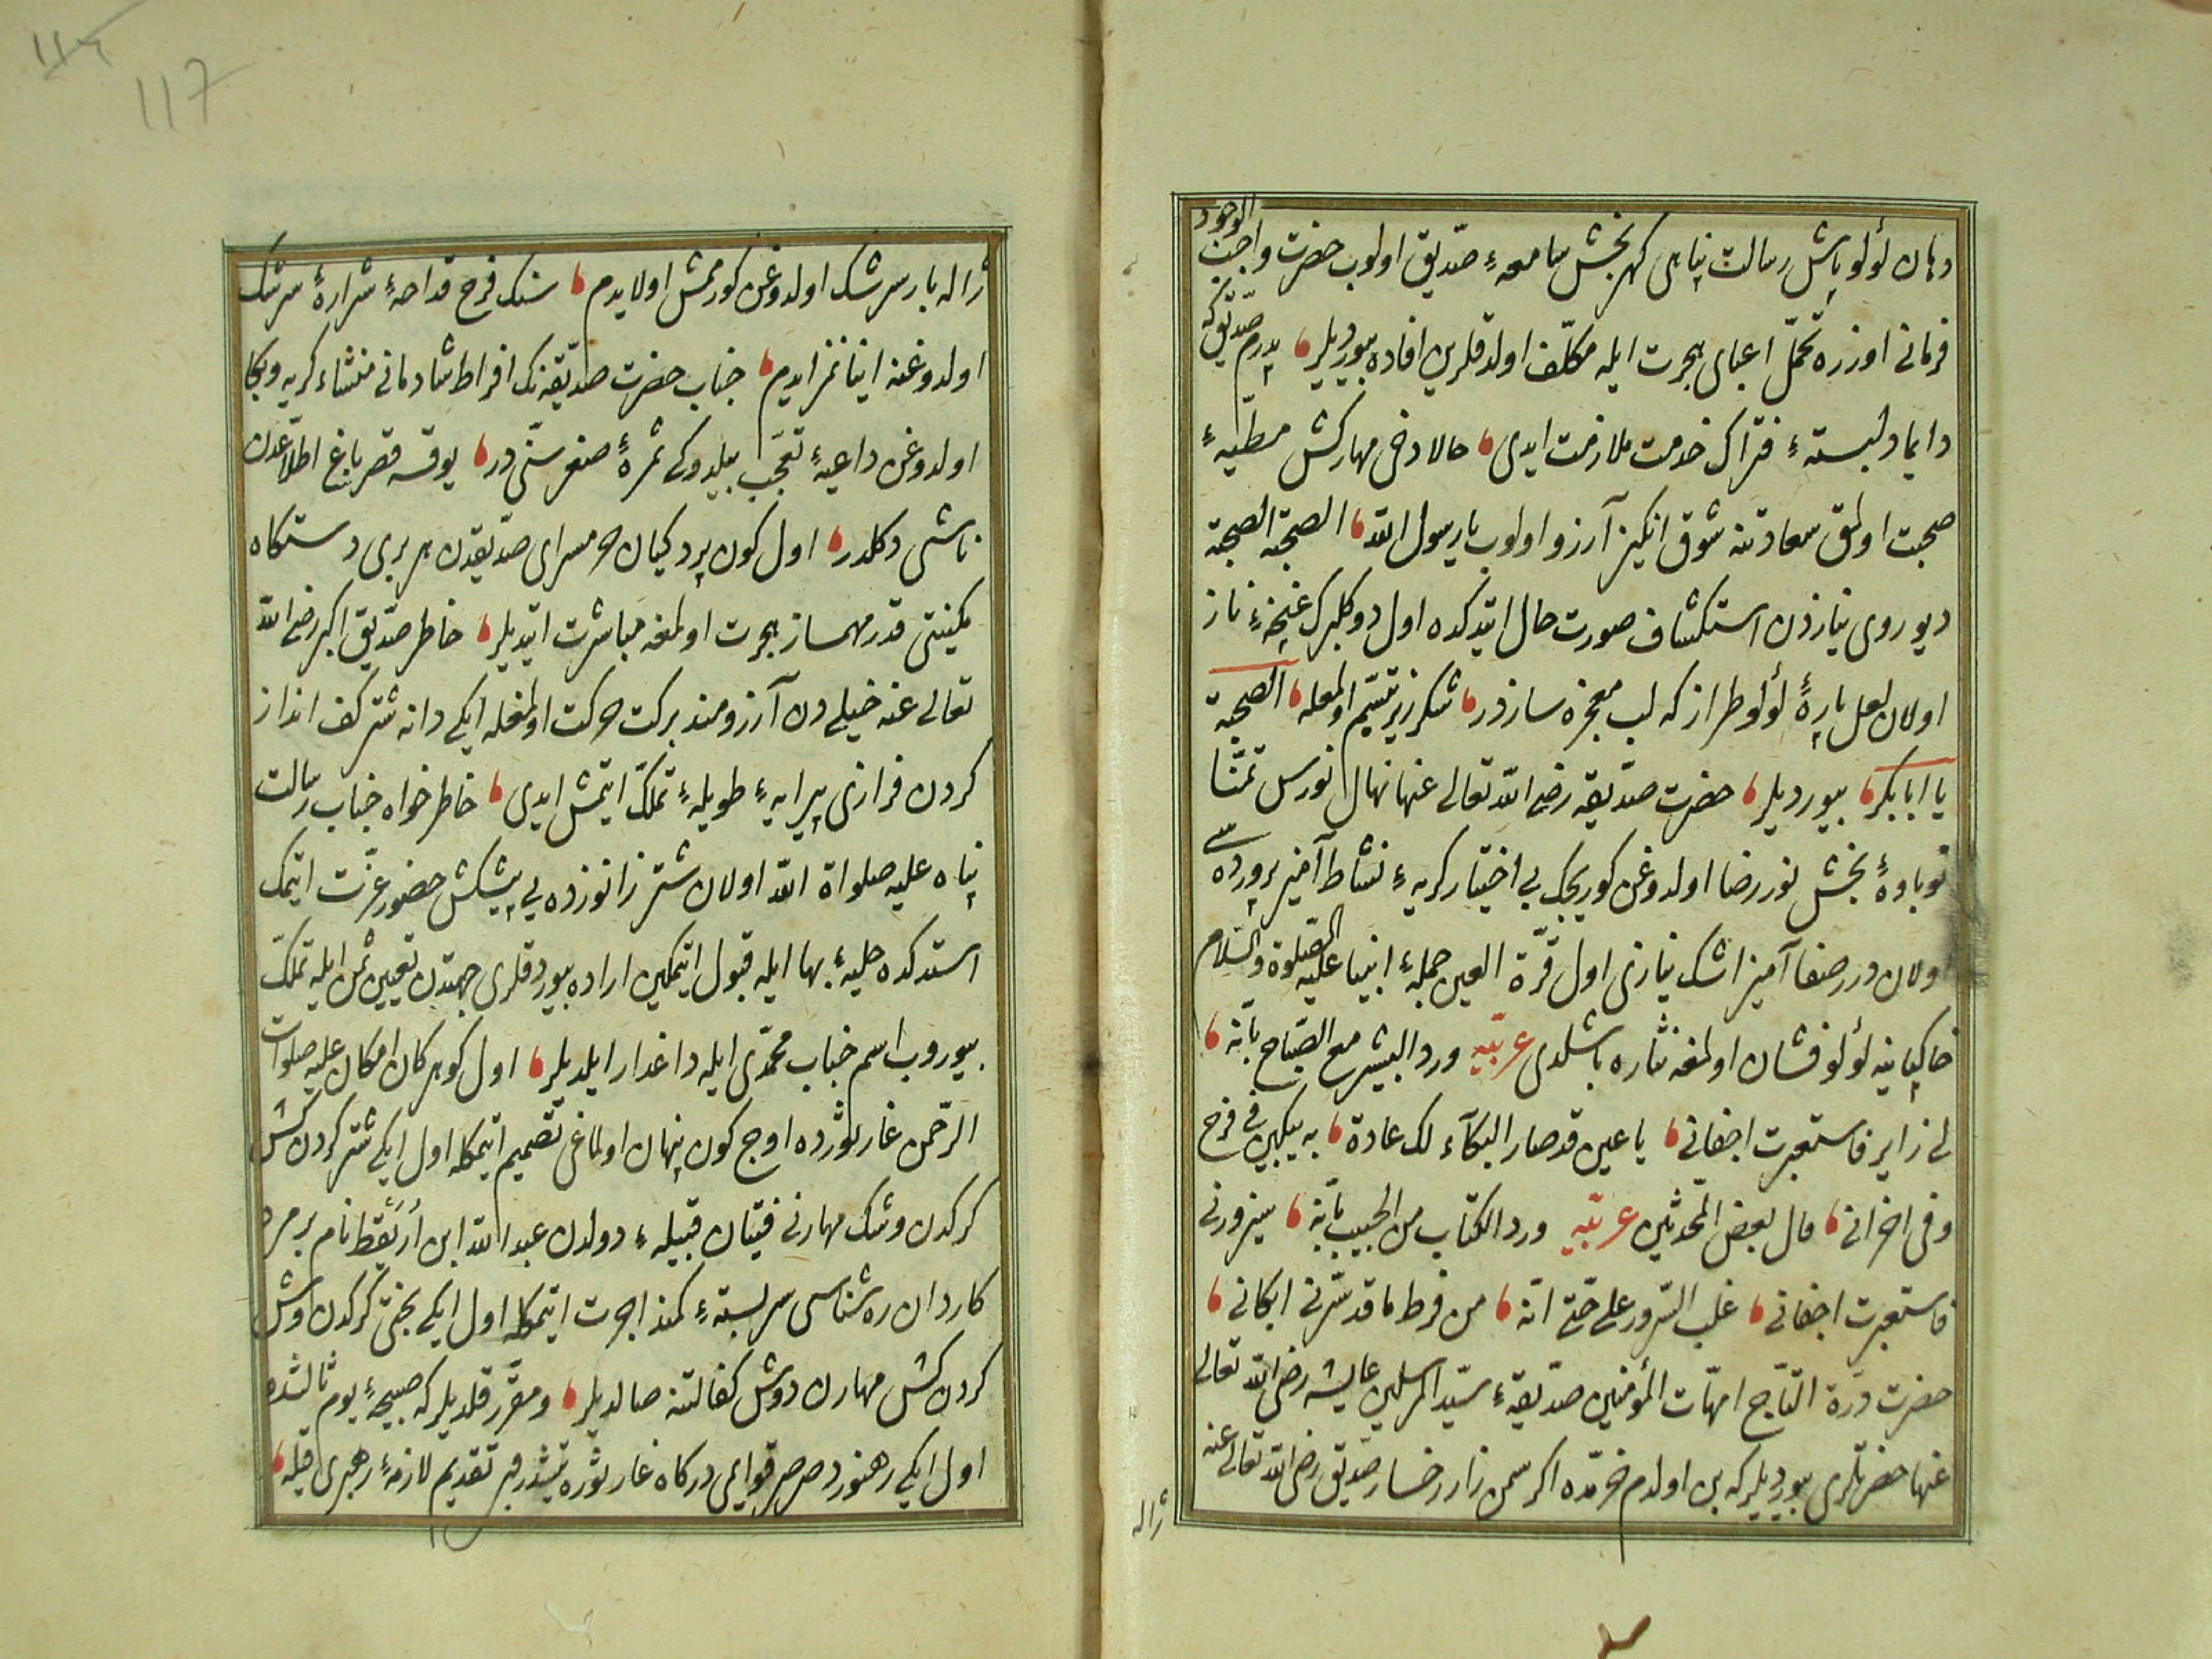 دهان لؤلوپاش رسالت پناهی گهربخش سامعهٔ صدّیق اولوب حضرت واجب الوجود
فرمانی اوزره تحمّل اعبای هجرت ایله مکلّف اولدقلرین افاده بیوردیلر، پدرم صدّیق که
دایما دلبستهٔ فتراک خدمت ملازمت ایدی، حالا دخی مهارکش مطیّهٔ
صحبت اولمق سعادتنه شوق انگیز آرزو اولوب یا رسول الله، الصحبة الصحبة
دیو روی نیازدن استکشاف صورت حال ایتدکده اول دو گلبرک غنچهٔ ناز
اولان لعل پارهٔ لؤلو طراز که لب معجزه سازدر، شکرریز تبسّم اولمغله، الصحبة
یا ابا بکر، بیوردیلر، حضرت صدّیقه رضی الله تعالی عنها نهال نورس تمنّا
نوباوهٔ بخش نور رضا اولدوغن کوریجک بی اختیار کریهٔ نشاط آمیز پرورده سی
اولان درر صفا آمیز اشک نیازی اول قرّة العین جملهٔ انبیا علیه الصّلوة والسّلام
خاکپاینه لؤلؤ فشان اولمغه نثاره باشلدی عربیّه ورد البشیر مع الصّباح بانّه،
لی زایر فاستعبرت اجفانی، یا عین قد صار البکآء لک عادة، تبکین فی فرح
وفی احزانی، قال بعض المحّدثین عربیّه ورد الکتاب من الحبیب بانّه، سیزورنی
فاستعبرت اجفانی، غلب السّرور علی حتی انّه، من فرط ما قد سّرنی ابکانی،
حضرت درّة التّاج امهّات المؤمنین صدّیقهٔ سیّد المرسلین عایشه رضی الله تعالی
عنها حضرتلری بیوردیلر که بن اولدم خرّمده اکر سمن زار رخسار صدّیق رضی الله تعالی عنه
ژاله
117
ژاله بار سرشک اولدوغن کورمش اولایدم، سنک فرح قداحهٔ شرارهٔ سرشک
اولدوغنه اینانمز ایدم، جناب حضرت صدّیقه نک افراط شادمانی منشاء کریه و بکا
اولدوغن داعیهٔ تعجّب بیلدوکی ثمرهٔ صغر سنّی در، یوقسه قصر باغ اطلاعدن
ناشی دکلدر، اول کون پردکیان حرمسرای صدّیقدن هر بری دستکاه
مکنتی قدر مهمساز هجرت اولمغه مباشرت ایتدیلر، خاطر صدّیق اکبر رضی الله
تعالی عنه خیلی دن آرزومند برکت حرکت اولمغله ایکی دانه شتر کف انداز
کردن فرازی پیرایهٔ طویلهٔ تملّک ایتمش ایدی، خاطرخواه جناب رسالت
پناه علیه صلواة الله اولان شتر زانوزده یی پیشکش حضور عزّت ایتمک
استدکده حلیهٔ بها ایله قبول ایتمکین اراده بیوردقلری جهتدن تعیین ثمن ایله تملّک
بیوروب اسم جناب محمّدی ایله داغدار ایلدیلر، اول کوهر کان امکان علیه صلوات
الرّحمن غار ثورده اوچ کون پنهان اولماغی تصمیم ایتمکله اول ایکی شتر کردن کش
کرکدن وشک مهارنی فتیان قبیلهٔ دولدن عبد الله ابن اُرَیقَط نام بر مرد
کاردان ره شناسی سربستهٔ کمند اجرت ایتمکله اول ایکی بختی کرکدن وش
کردن کش مهارن دوش کفالتنه صالدیلر، و مقرّر قلدیلر که صبیحهٔ یوم ثالثده
اول ایکی رهنورد صرصر قوایمی درکاه غار ثوره یتشدرر تقدیم لازمهٔ رهبری قیله،